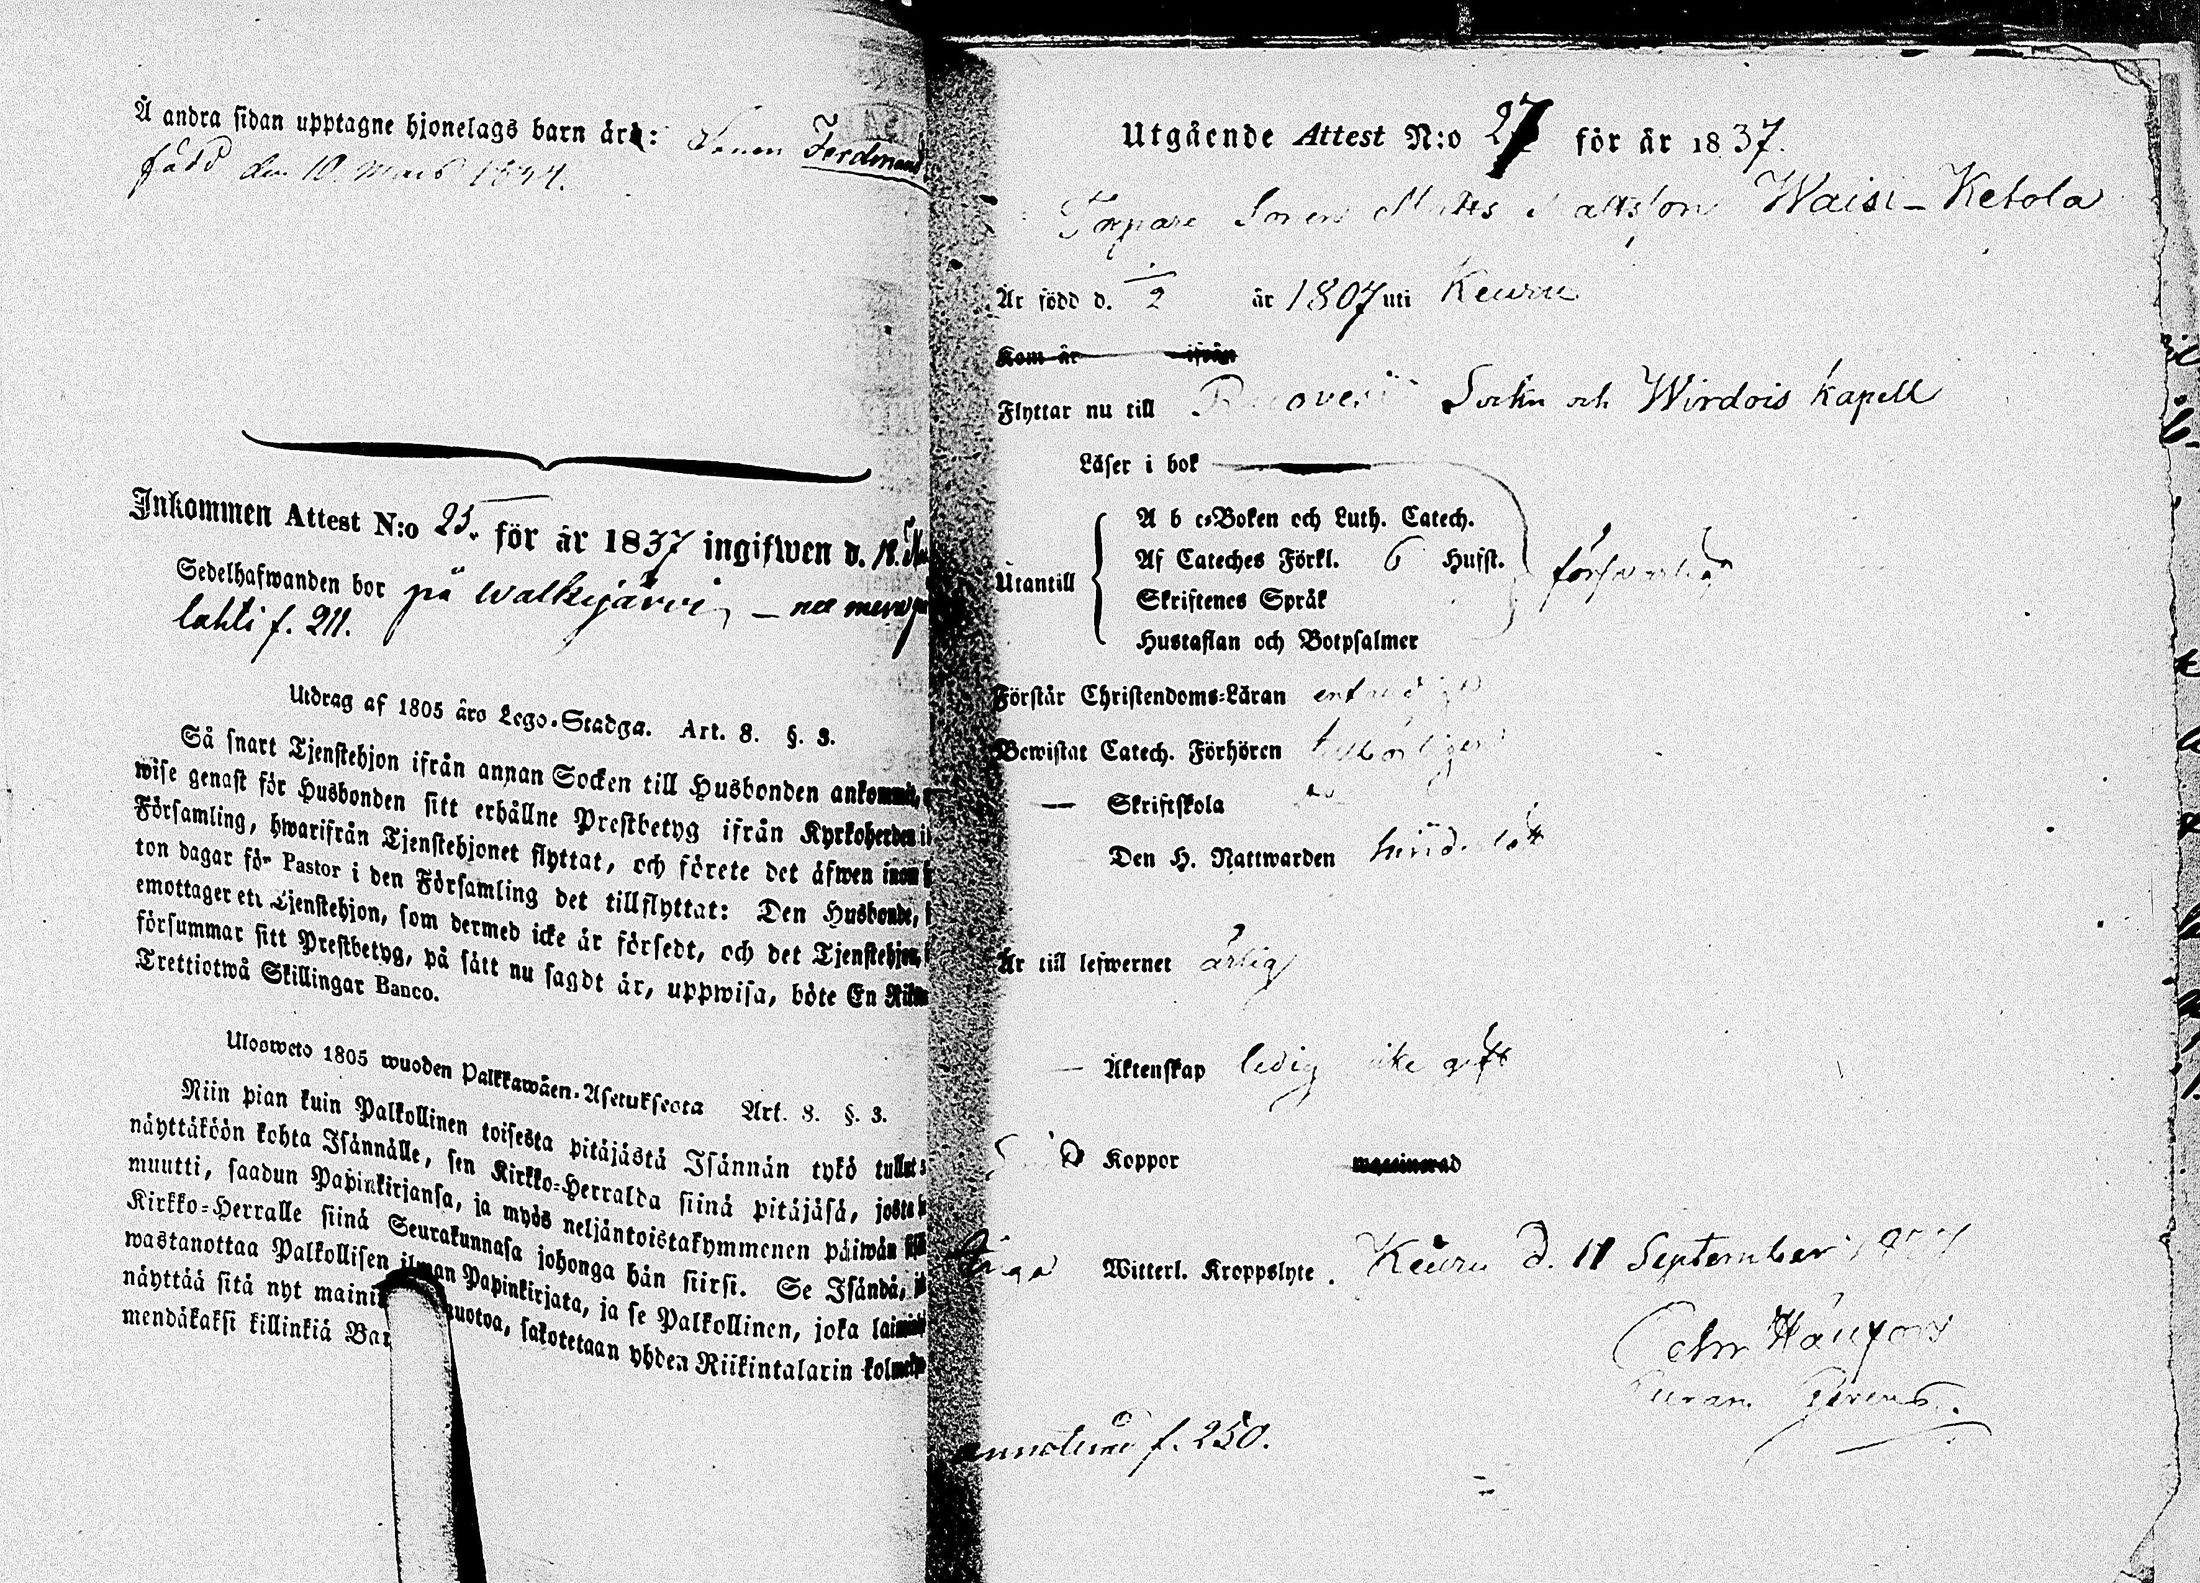 Å andra sidan upptagne hjonelags barn är: Sonen Ferdinand
född den 10 Mars
Inkommen Attest N:o 25. för år 1837 ingifwen d. 18.
Sedelhafwanden bor på Walkijärvi
lahti f. 211.
Utdrag af 1805 års Lego-Stadga. Art. 8. §. 3.
Så snart Tjenstehjon ifrån annan Socken till Husbonden ankommit,
wise genast för Husbonden sitt erhållne Prestbetyg ifrån Kyrkoherden i
Församling, hwarifrån Tjenstehjonet flyttat, och förete det äfwen inom
ton dagar för Pastor i den Församling det tillflyttat: Den Husbonde,
emottager ett Tjenstehjon, som dermed icke är försedt, och det Tjenstehjon,
försummar sitt Prestbetyg, på sätt nu sagdt är, uppwisa, böte En
Trettiotwå Skillingar Banco.
Ulosweto 1805 wuoden Palkkawäen-Asetuksesta Art. 8. §. 3.
Niin pian kuin Palkollinen toisesta pitäjästä Isännän tykö tullut
näyttäköön kohta Isännälle, sen Kirkko-Herralda siinä pitäjäsä, josta
muutti, saadun Papinkirjansa, ja myös neljäntoistakymmenen päiwän
Kirkko-Herralle siinä Seurakunnasa johonga hän siirsi. Se Isändä,
wastanottaa Palkollisen ilman Papinkirjata, ja se Palkollinen, joka
näyttää sitä nyt muotoa, sakotetaan yhden Riikintalarin
mendäkaksi killinkiä
Utgående Attest N:o 27 för år 1837.
Torpare Sonen Matts Mattsson Waisi-Ketola
Är född d. 1/2 år 1807 uti Keuru
Kom år ifrån
Flyttar nu till Ruovesi Sockn och Wirdois Kapell
Läser i bok
Utantill
A b c-Boken och Luth. Catech.
Af Cateches Förkl. 6 Hufst.
Skriftenes Språk
Hustaflan och Botpsalmer
försvarligt
Förstår Christendoms-Läran
Bewistat Catech. Förhören behörigen
— Skriftskola
Den H. Nattwarden
Är till lefwernet ärlig
— Äktenskap ledig icke gift
Koppor waccinerad
Inga Witterl. Kroppslyte. Keuru d. 11 September
annoterad f. 250.